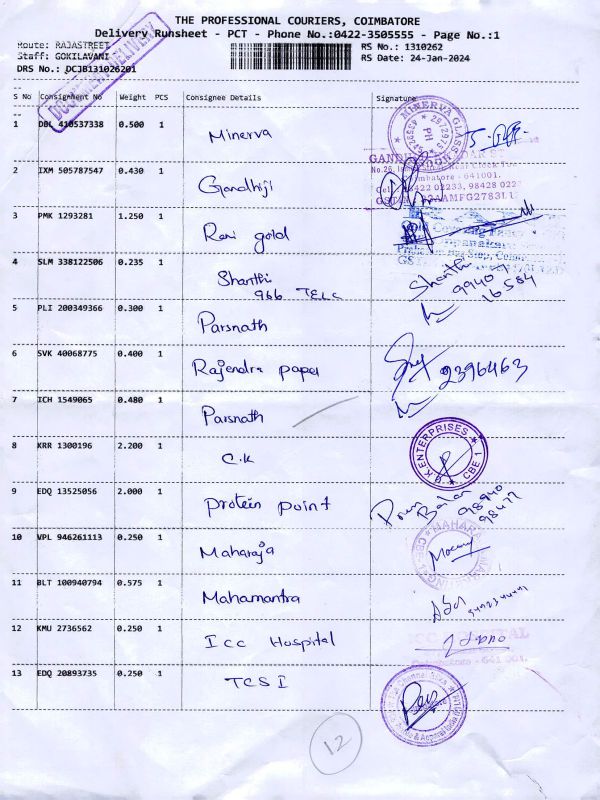 THE PROFESSIONAL COURIERS, COIMBATORE
Delivery Runsheet - PCT - Phone No.:0422-3505555 - Page No.:1
Route: RAJASTREET
RS No.: 1310262
Staff: GOKILAVANI
RS Date: 24-Jan-2024
DRS No.: DCJB131026201
S No Consignment No Weight PCS Consignee Details Signature
1 DBL 410537338 0.500 1 Minerva
MINERVA GLASS
2 IXM 505787547 0.430 1 Gandhiji
641001.
3 PMK 1293281 1.250 1 Rani gold
4 SLM 338122506 0.235 1 Shanthi
966 TELC
Shanthi
9940
16584
5 PLI 200349366 0.300 1 Parsnath
6 SVK 40068775 0.400 1 Rajendra paper
2396463
7 ICH 1549065 0.480 1 Parsnath
8 KRR 1300196 2.200 1 C.K
K ENTERPRISES
CBE 1
9 EDQ 13525056 2.000 1 Protein point
98940
98477
10 VPL 946261113 0.250 1 Maharaja
11 BLT 100940794 0.575 1 Mahamantra
12 KMU 2736562 0.250 1 ICC Hospital
Coimbatore - 641 001.
13 EDQ 20893735 0.250 1 TCSI
12